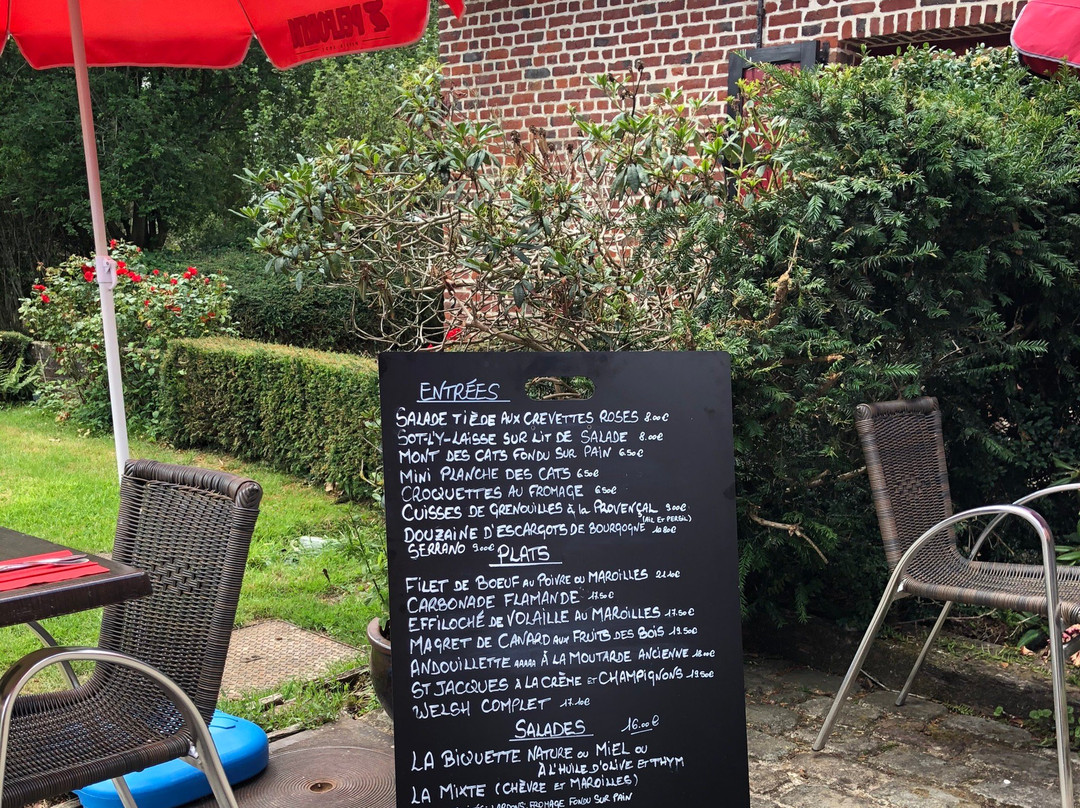 ENTRÉES
SALADE TIÈDE AUX CREVETTES ROSES 8.00€
SOT-L'Y-LAISSE SUR LIT DE SALADE 8.00€
MONT DES CATS FONDU SUR PAIN 6.50€
MINI PLANCHE DES CATS 6.50€
CROQUETTES AU FROMAGE 6.50€
CUISSES DE GRENOUILLES à la PROVENÇAL 9.00€
(AIL ET PERSIL)
DOUZAINE D'ESCARGOTS DE BOURGOGNE 10.80€
SERRANO 9.00€
PLATS
FILET DE BOEUF AU POIVRE OU MAROILLES
CARBONADE FLAMANDE 17.50€
EFFILOCHÉ DE VOLAILLE AU MAROILLES 17.50€
MAGRET DE CANARD AUX FRUITS DES BOIS 19.50€
ANDOUILLETTE AAAAA À LA MOUTARDE ANCIENNE
ST JACQUES À LA CRÈME ET CHAMPIGNONS 19.50€
WELSH COMPLET
SALADES 16.00€
LA BIQUETTE NATURE OU MIEL OU
À L'HUILE D'OLIVE ET THYM
LA MIXTE (CHÈVRE ET MAROILLES)
LARDONS, FROMAGE FONDU SUR PAIN